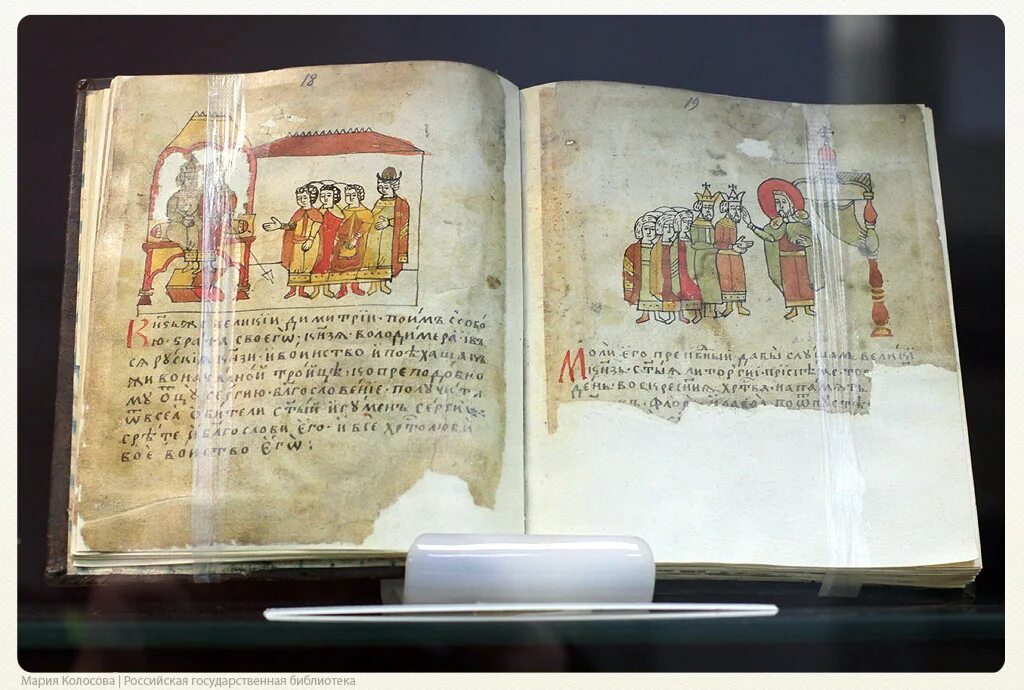 18
Кн҃зь великїй димитрїй · поимъ с собо
ю · брата своегѡ, кнѧзѧ володимера · и въ
сѧ рускїѧ кн҃зи · и воинство · и поѣха ша къ
живоначалной троицѣ, ко преподобно
мꙋ ѡц҃ꙋ сергию · благословенїе · получити ·
ѿ всеѧ обители ст҃ый игумен · сергиї
срѣте и благослови єго · и все хрⷭ҇толюби
вое воиство єгѡ :
19
Моли єго преп҃бный дабы слушал великї
кнѧзь · ст҃ыѧ литоргїи · приспѣ же то
день · воскресниѧ · хрⷭ҇тва · на памѧть
флора и лавра · по ѿпустѣ
Мария Колосова | Российская государственная библиотека